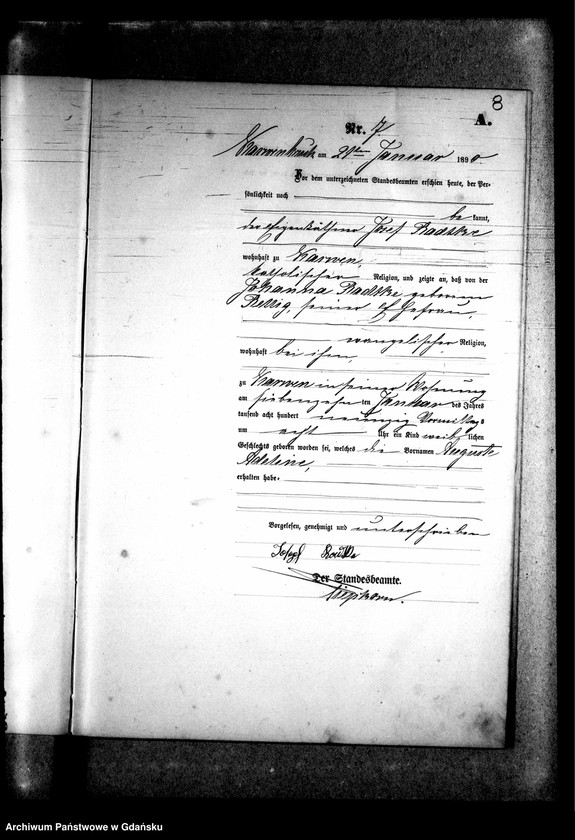 8
A.
Nr. 7.
Karwenbruch am 21ten Januar 1890.
Vor dem unterzeichneten Standesbeamten erschien heute, der Per-
sönlichkeit nach
be kannt,
der Eigenkäthner Josef Radtke
wohnhaft zu Karwen,
katholischer Religion, und zeigte an, daß von der
Johanna Radtke geborenen
seiner Ehefrau,
evangelischer Religion,
wohnhaft bei ihm,
zu Karwen in seiner Wohnung
am siebenzehnten Januar des Jahres
tausend acht hundert neunzig Vormittags
um acht Uhr ein Kind weiblichen
Geschlechts geboren worden sei, welches die Vornamen Auguste
Adeline,
erhalten habe.
Vorgelesen, genehmigt und unterschrieben
Josef
Der Standesbeamte.
Archiwum Państwowe w Gdańsku